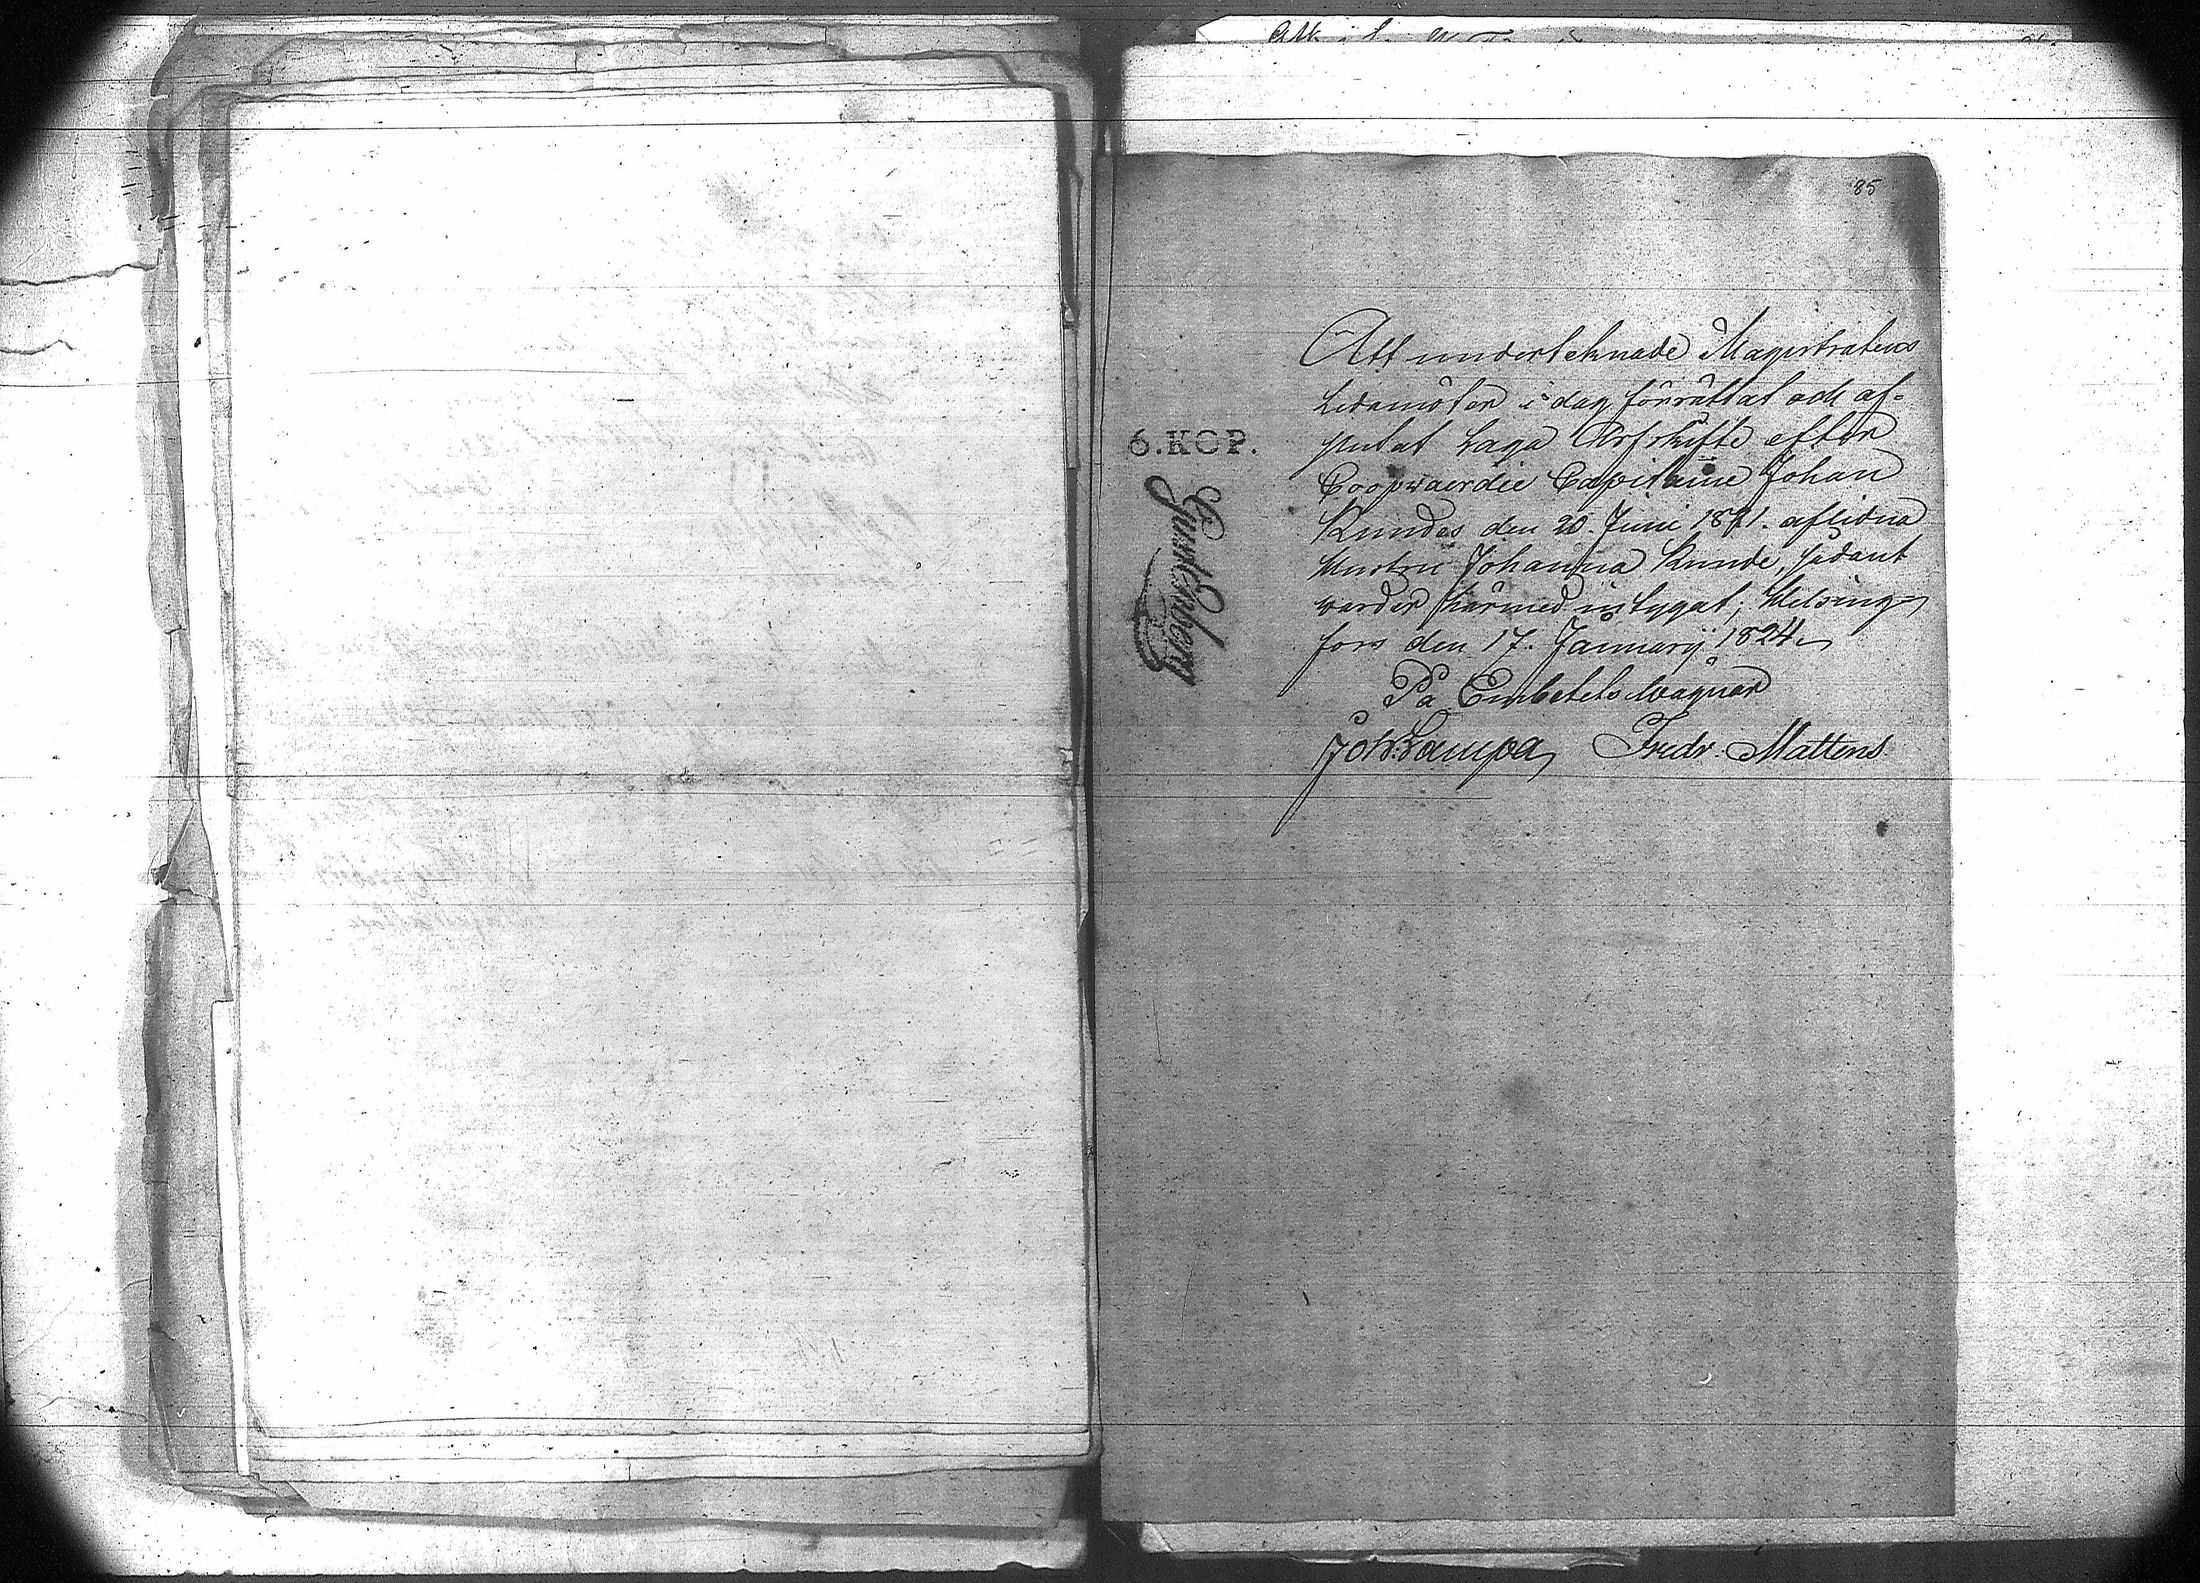 85
Att underteknade Magistratens
Ledamöter i dag förrättat och af-
slutat Laga Arfskifte efter
Coopvaerdie Capitaine Johan
Kundes den 20. Juni 1821. aflidna
Hustru Johanna Kunde, sådant
warder härmed intygat; Helsing-
fors den 17. Januarij 1824.
På Embetets wägnar
Joh: Lampa Fredr. Mattens
6. KOP.